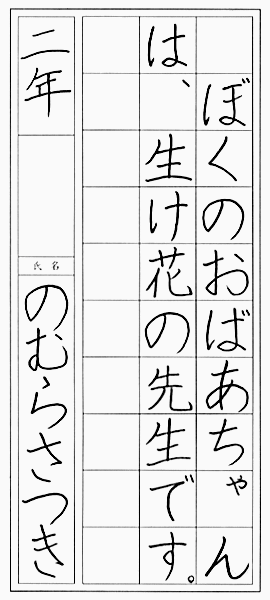 ぼくのおばあちゃん
は、生け花の先生です。
二年
氏名
のむらさつき